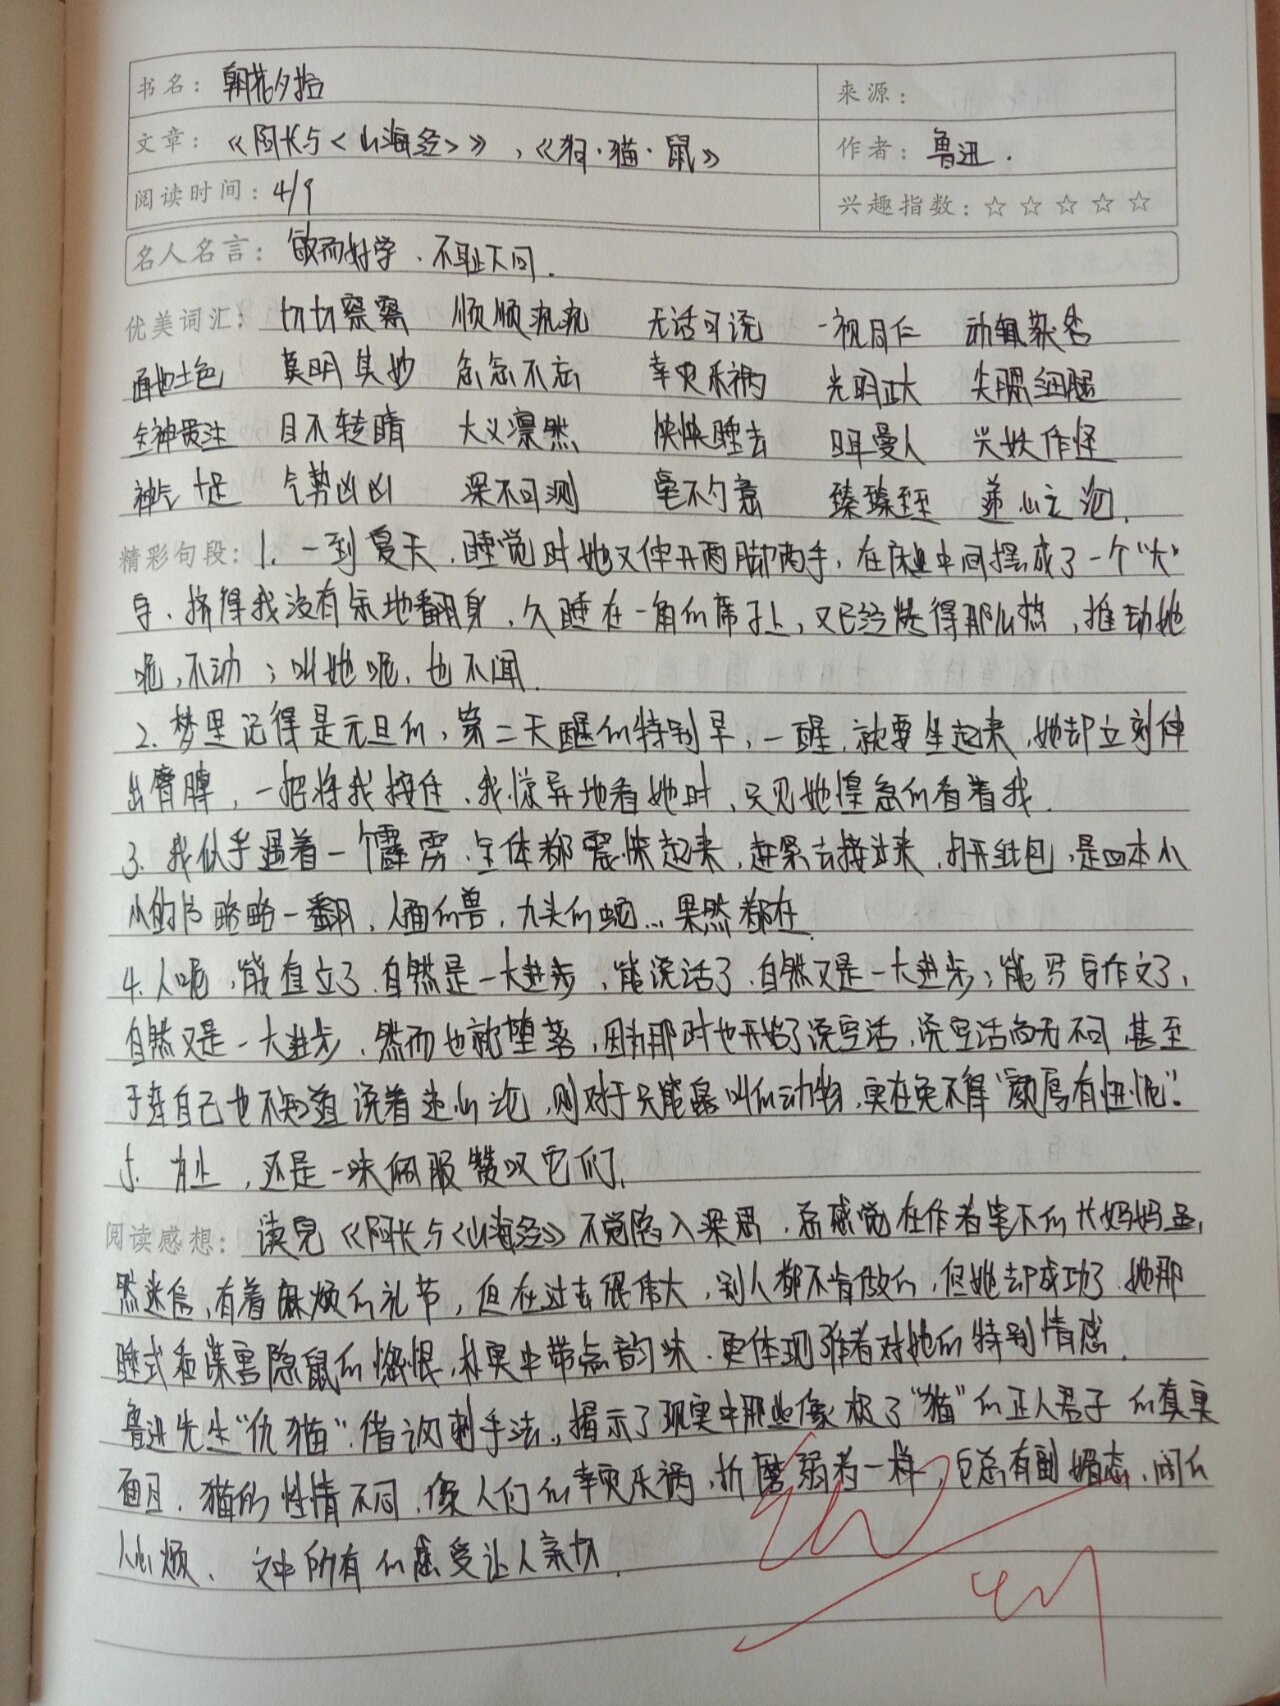 书名：朝花夕拾 来源：
文章：《阿长与<山海经>》，《狗·猫·鼠》 作者：鲁迅.
阅读时间：4/9 兴趣指数：☆☆☆☆☆
名人名言：敏而好学、不耻下问.
优美词汇：切切察察 顺顺流流 无话可说 一视同仁 动辄获咎
面如土色 莫明其妙 念念不忘 幸灾乐祸 光明正大 尖腮细腿
全神贯注 目不转睛 大义凛然 怏怏睡去 耳曼人 兴妖作怪
神气十足 气势凶凶 深不可测 毫不勺意 臻臻至至 违心之论.
精彩句段：1. 一到夏天，睡觉时她又伸开两脚两手，在床中间摆成了一个“大”
字、挤得我没有余地翻身，久睡在一角的席子上，又已经烤得那么热，推动她
呢，不动；叫她呢，也不闻.
2. 梦里记得是元旦的，第二天醒的特别早，一醒，就要坐起来，她却立刻伸
出臂膊，一把将我按住、我惊异地看她时，只见她惶急的看着我.
3. 我似乎遇着一个霹雳、全体都震悚起来，赶紧去接过来，打开纸包，是四本小
小的书略略一翻，人面的兽，九头的蛇…果然都在.
4. 人呢，能直立了、自然是一大进步，能说话了、自然又是一大进步；能写字作文了，
自然又是一大进步、然而也就堕落，因为那时也开始了说空话，说空话尚无不可，甚至
于连自己也不知道说着违心论，则对于只能嗥叫的动物，实在免不得“颜厚有忸怩”.
5. 为止，还是一味佩服赞叹它们.
阅读感想：读完《阿长与<山海经>》不觉陷入深思，总感觉在作者笔下的长妈妈虽
然迷信，有着麻烦的礼节，但在过去很伟大，别人都不肯做的，但她却成功了、她那
睡式和谋害隐鼠的憎恨，朴实中带点韵味、更体现作者对她的特别情感.
鲁迅先生“仇猫”、借讽刺手法，揭示了现实中那些像极了“猫”的正人君子的真实
面目、猫的性情不同、像人们的幸灾乐祸，折磨弱者一样，总有副媚态、闹的
人心烦、文中所有的感受让人亲切.